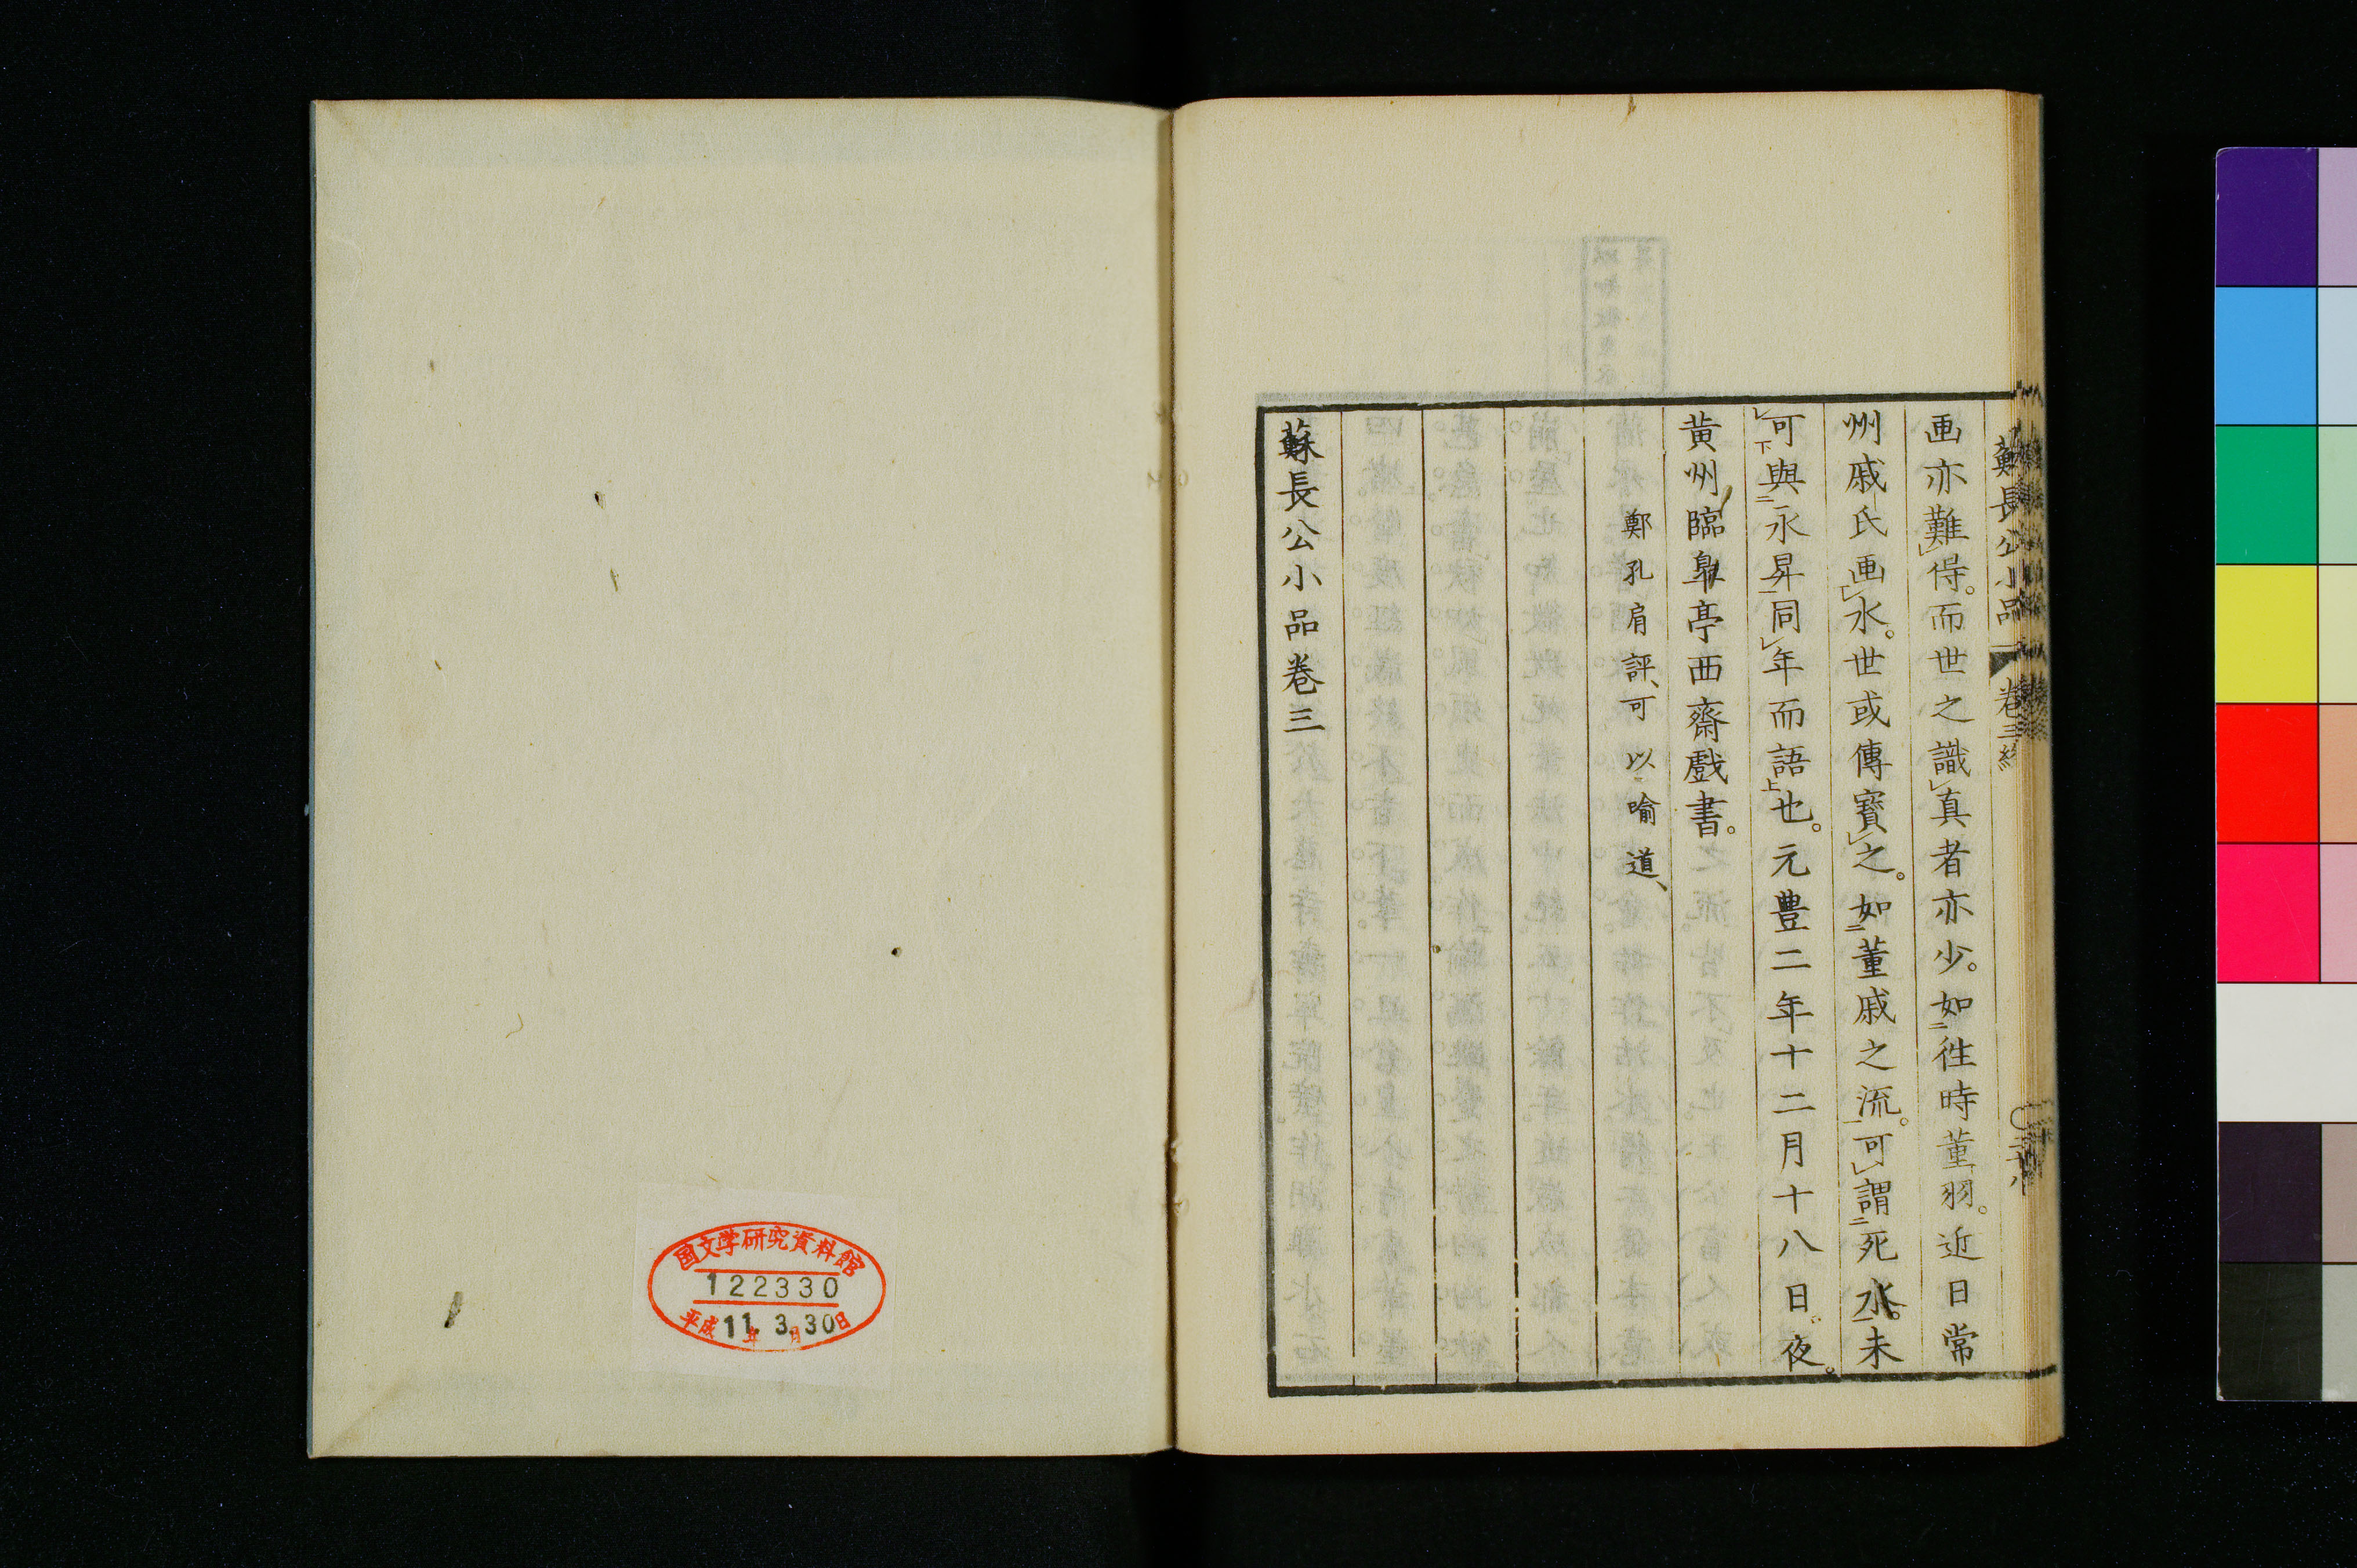 蘇長公小品 卷三終
画亦難㝵。而世之識真者亦少。如徃時董羽。近日常
州戚氏画水。世或傳寳之。如董戚之流。可謂死水。未
可與永昇同年而語也。元豊二年十二月十八日。夜。
黄州臨臯亭西齋戲書。
鄭孔肩評、可以喻道、
蘇長公小品卷三
国文学研究資料館
122330
平成11年3月30日